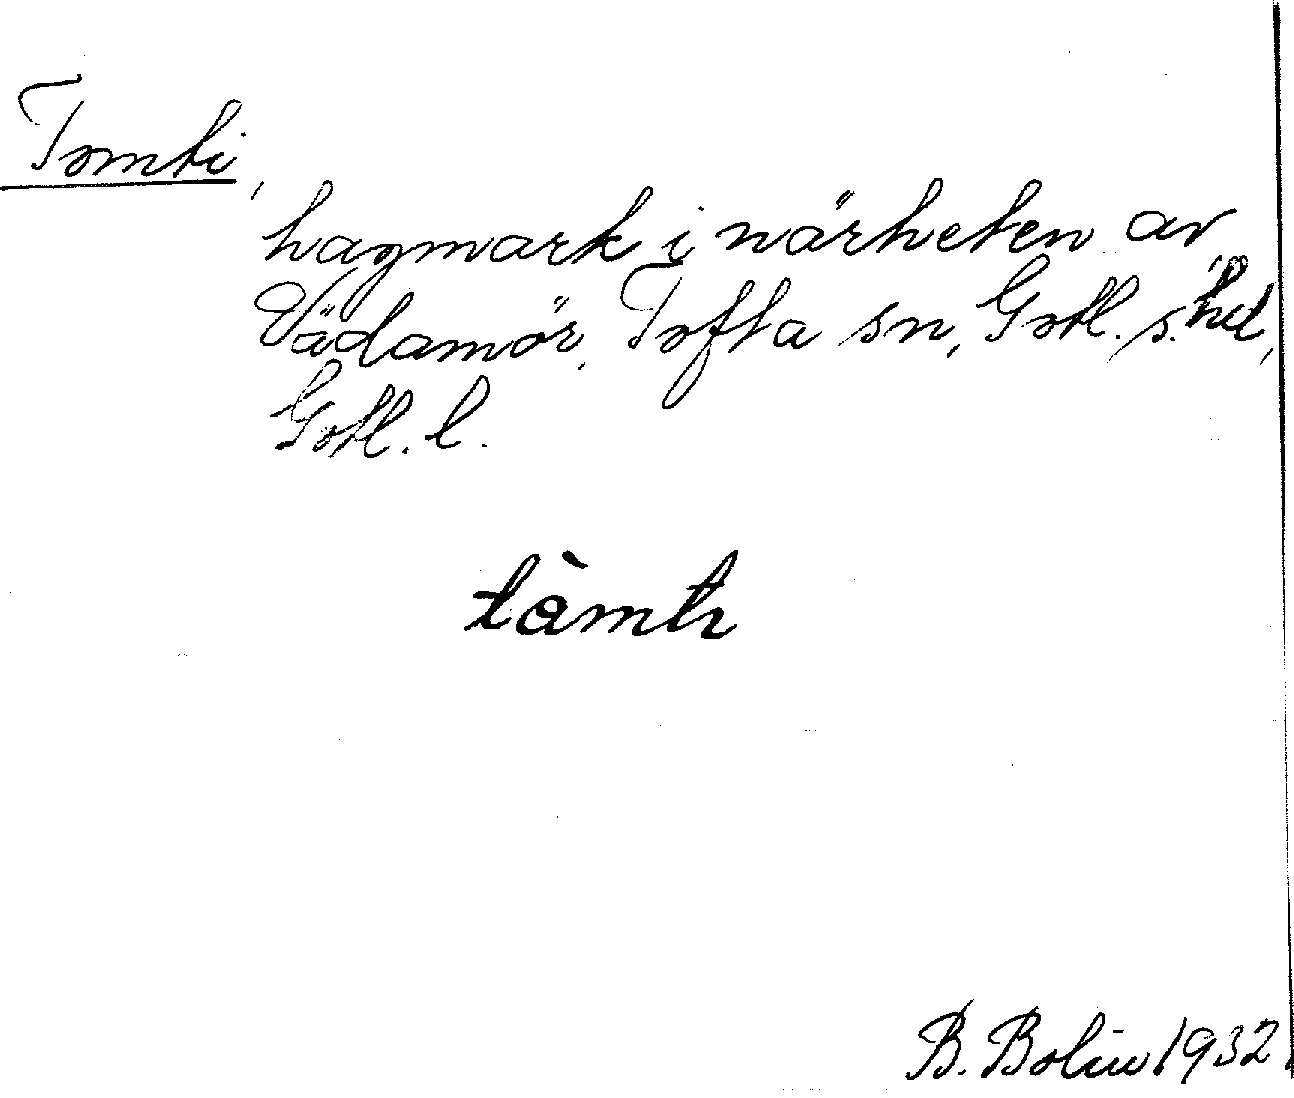 Tomti,
hagmark i närheten av
Vädamör, Tofta sn, Gotl. s. hd,
Gotl. l.
tàmtı
B. Bolin 1932.